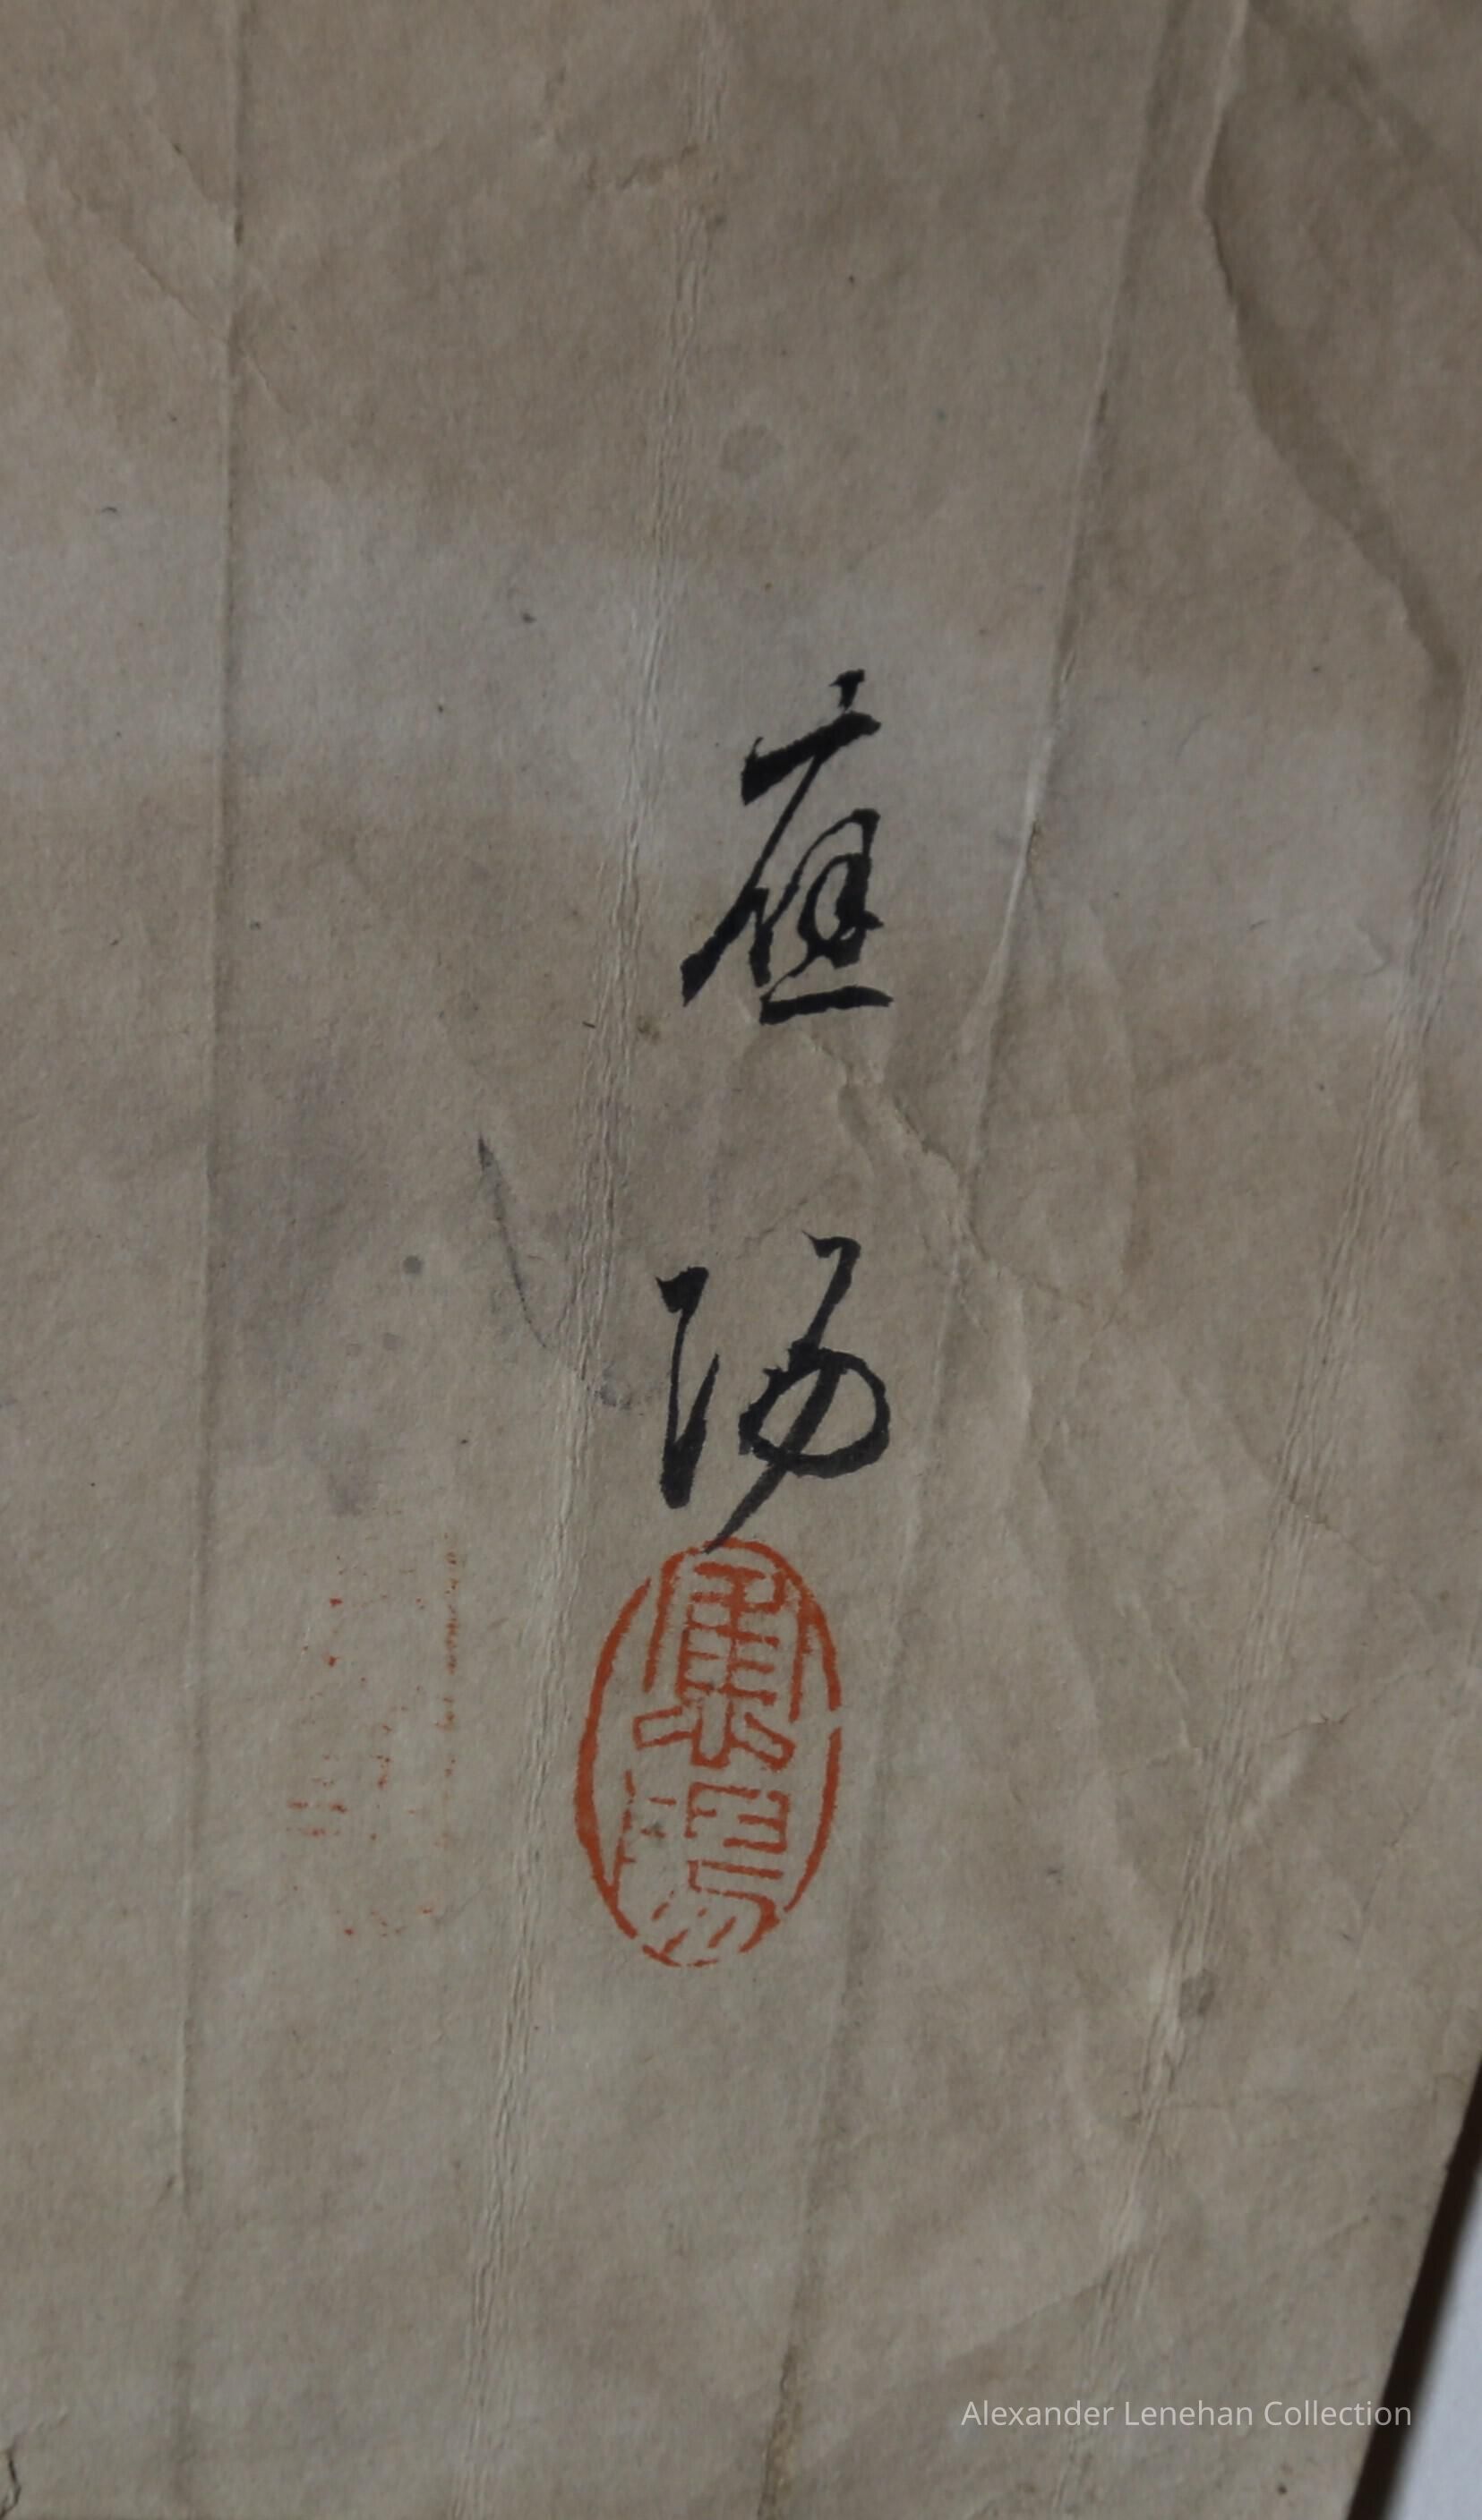 應
陽
應陽
Alexander Lenehan Collection